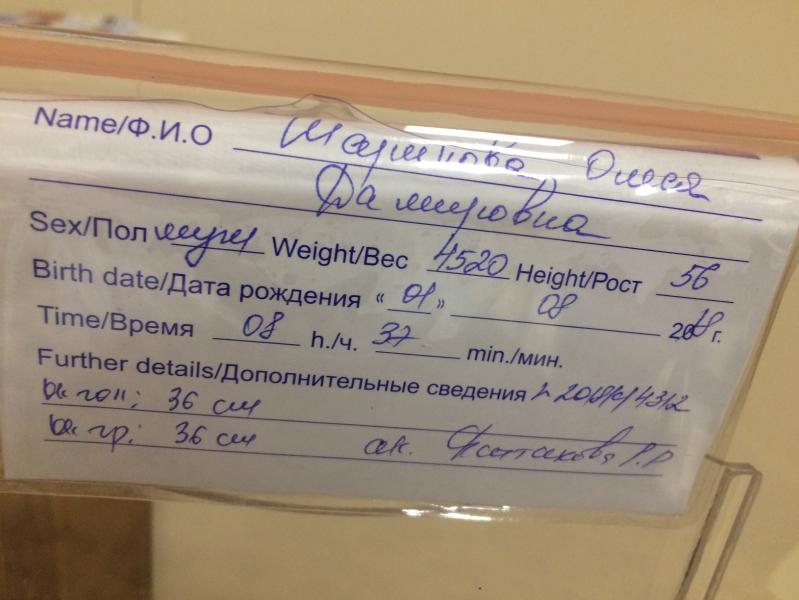 Name/Ф.И.О Олеся
Дамировна
Sex/Пол муж Weight/Вес 4520 Height/Рост 56
Birth date/Дата рождения « 01 » 08 2018 г.
Time/Время 08 h./ч. 37 min./мин.
Further details/Дополнительные сведения
Ок гол: 36 см
Ок гр: 36 см ак. Фаттахова Р.Р